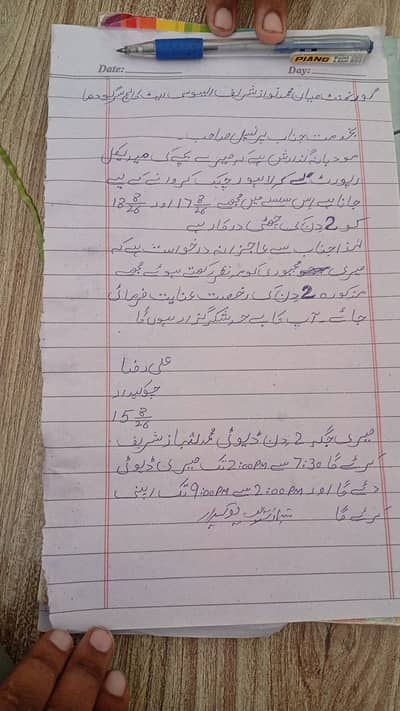 PIANO
Date:
Day:
گورنمنٹ میاں محمد نواز شریف ایسوسی ایٹ کالج سرگودھا
بخدمت جناب پرنسپل صاحب۔
مودبانہ گزارش ہے کہ میرے بچے کی میڈیکل
رپورٹ لے کر لاہور چیک کروانے کے لیے
جانا ہے اس سلسلے میں مجھے 17 8/26 اور 18 8/26
کو 2 دن کی چھٹی درکار ہے
لہذا جناب سے عاجزانہ درخواست ہے کہ
میری مجبوری کو مدنظر رکھتے ہوئے مجھے
مذکورہ 2 دن کی رخصت عنایت فرمائی
جائے۔ آپ کا بے حد شکر گزار ہوں گا
علی رضا
چوکیدار
15 8/26
میری جگہ 2 دن ڈیوٹی محمد شہباز شریف
کرے گا 7:30 سے 2:00PM تک میری ڈیوٹی
دے گا اور 2:00PM سے 9:00PM تک اپنی
کرے گا